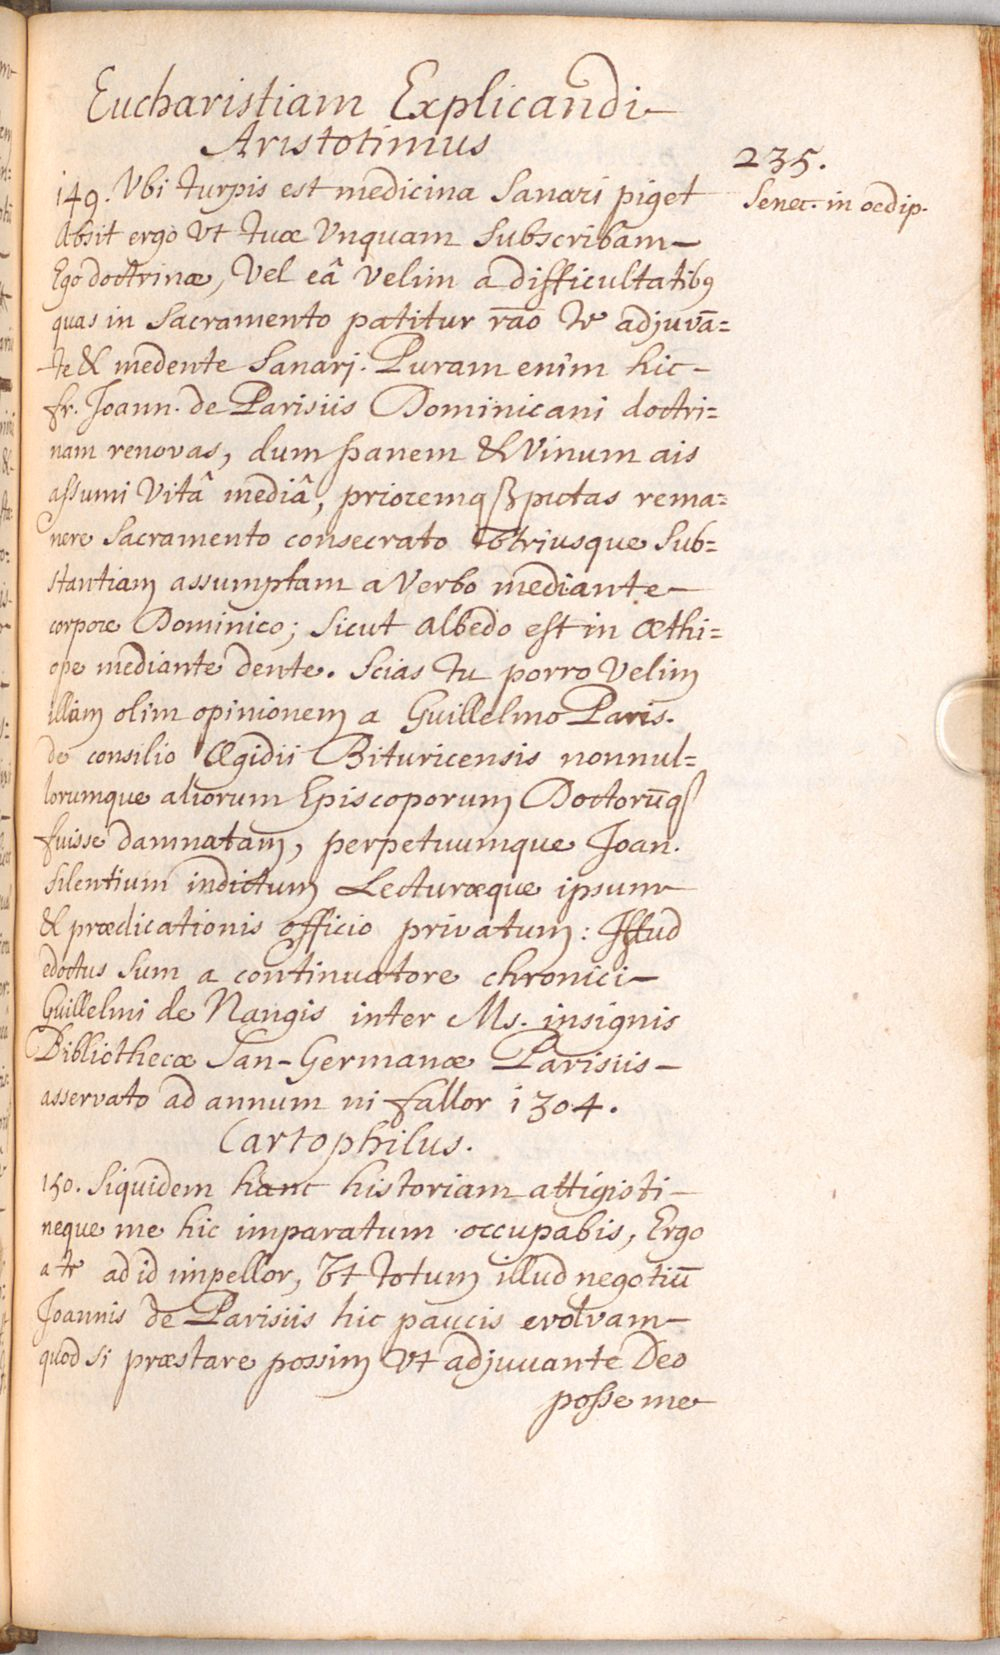 Eucharistiam Explicandi
Aristotimus
235.
149. Vbi turpis est medicina Sanari piget
Senec. in oedip.
Absit ergo Vt tuæ Vnquam Subscribam
Ego doctrinæ, Vel eâ velim a difficultatibꝯ
quas in Sacramento patitur rāo te adjuvā=
te & medente Sanarj. Puram enim hic
fr. Joann. de Parisiis Dominicani doctri=
nam renovas, dum panem & Vinum ais
assumi Vitâ mediâ, prioremqꝫ putas rema=
nere Sacramento consecrato Vtriusque Sub=
stantiam assumptam a Verbo mediante
corpore Dominico; Sicut albedo est in Æthi=
ope mediante dente. Scias tu porro Velim
illam olim opinionem a Guillelmo Paris.
de consilio Ægidii Bituricensis nonnul=
lorumque aliorum Episcoporum Doctorūqꝫ
fuisse damnatam, perpetuumque Joan.
Silentium indictum Lecturæque ipsum
& prædicationis officio privatum: Istud
edoctus Sum a continuatore chronici
Guillelmi de Nangis inter Ms. insignis
Bibliothecæ San-Germanæ Parisiis
asservato ad annum ni fallor 1304.
Cartophilus.
150. Siquidem hanc historiam attigisti
neque me hic imparatum occupabis, Ergo
a te ad id impellor, Vt totum illud negotiū
Joannis de Parisiis hic paucis evolvam
quod Si præstare possim Vt adjuvante Deo
posse me